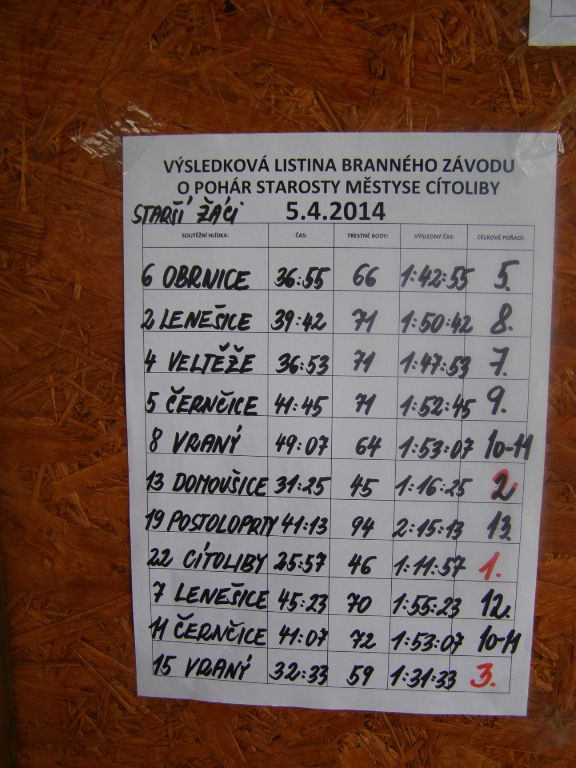 VÝSLEDKOVÁ LISTINA BRANNÉHO ZÁVODU
O POHÁR STAROSTY MĚSTYSE CÍTOLIBY
STARŠÍ ŽÁCI 5.4.2014
SOUTĚŽNÍ HLÍDKA: ČAS: TRESTNÉ BODY: VÝSLEDNÝ ČAS: CELKOVÉ POŘADÍ:
6 OBRNICE 36:55 66 1:42:55 5.
2 LENEŠICE 39:42 71 1:50:42 8.
4 VELTĚŽE 36:53 71 1:47:53 7.
5 ČERNČICE 41:45 71 1:52:45 9.
8 VRANÝ 49:07 64 1:53:07 10-11
13 DOMOUŠICE 31:25 45 1:16:25 2
19 POSTOLOPRTY 41:13 94 2:15:13 13.
22 CÍTOLIBY 25:57 46 1:11:57 1.
7 LENEŠICE 45:23 70 1:55:23 12.
11 ČERNČICE 41:07 72 1:53:07 10-11
15 VRANÝ 32:33 59 1:31:33 3.